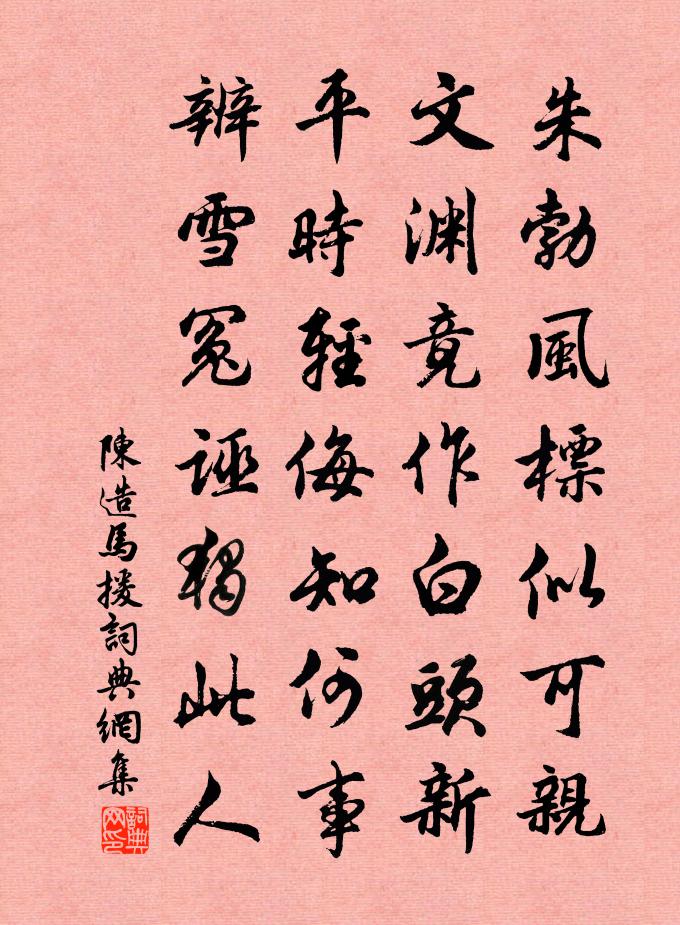 朱勃風標似可親
文渊竟作白頭新
平時輕侮知何事
辨雪冤誣獨此人
陳造馬援詞典網集
詞典网印